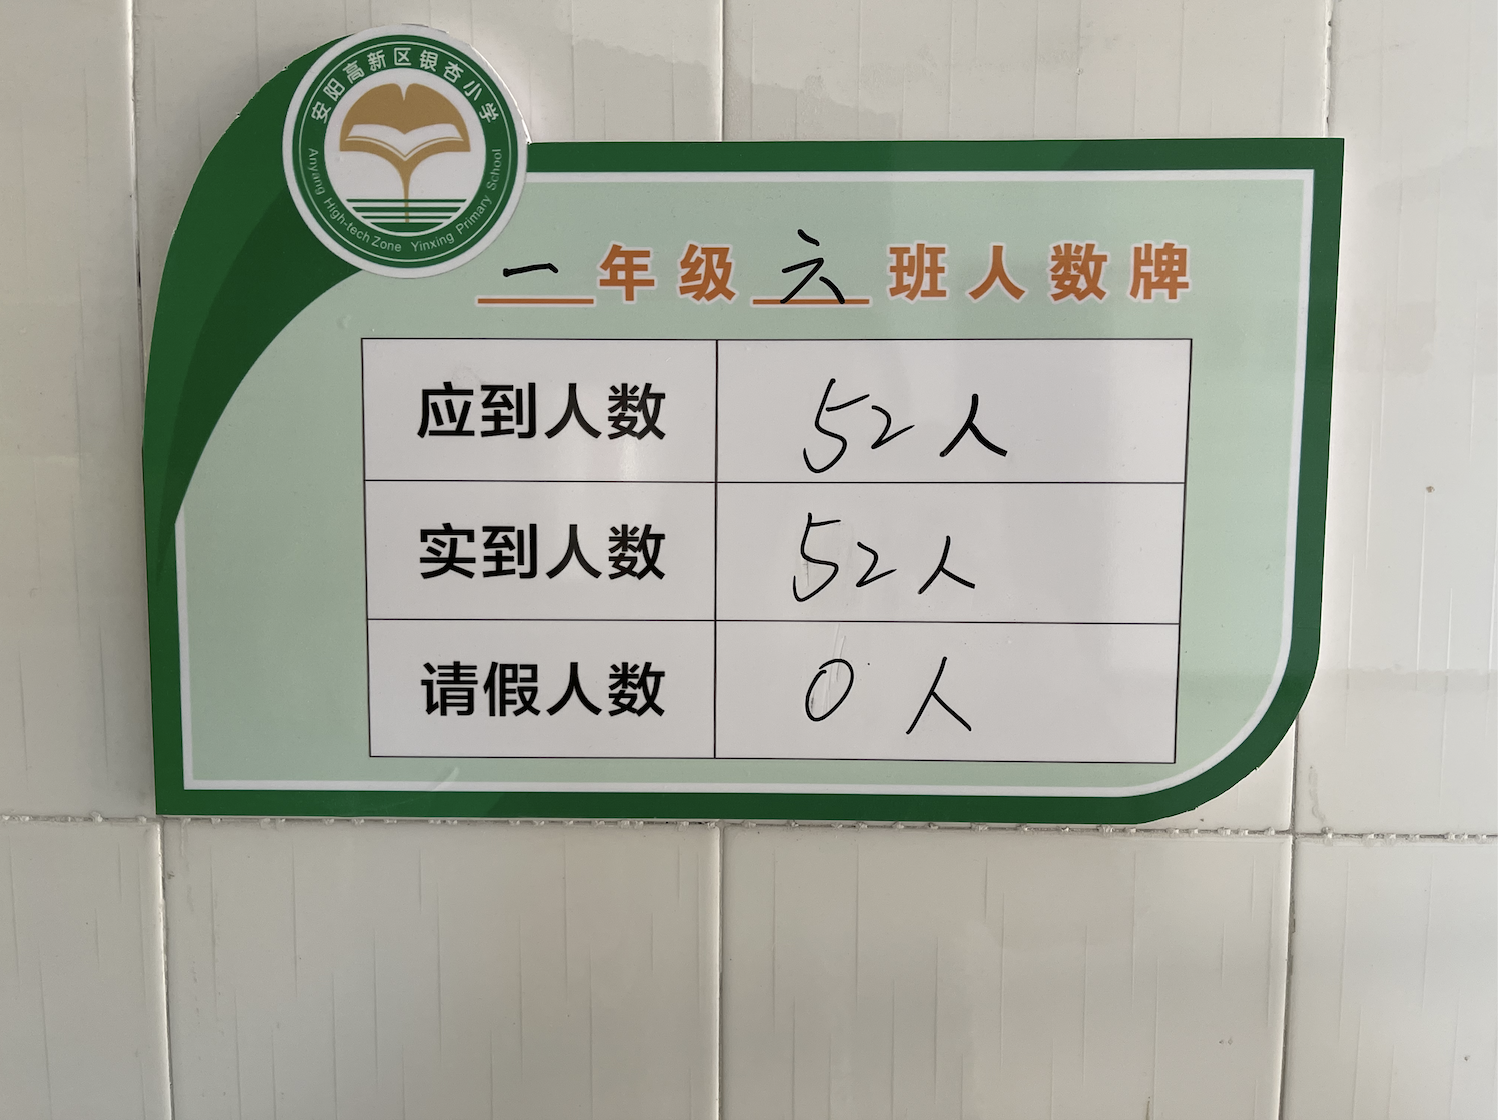 安阳高新区银杏小学
Anyang High-tech Zone Yinxing Primary School
一年级六班人数牌
应到人数 52人
实到人数 52人
请假人数 0人